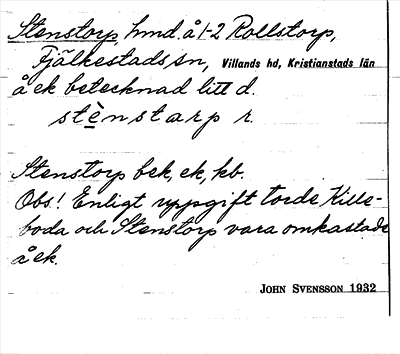 Stenstorp, hmd. å 1-2 Rollstorp,
Fjälkestads sn, Villands hd, Kristianstads län
å ek betecknad litt d.
stènstarp r.
Stenstorp bek, ek, kb.
Obs! Enligt uppgift torde Kille-
boda och Stenstorp vara omkastade
å ek.
JOHN SVENSSON 1932